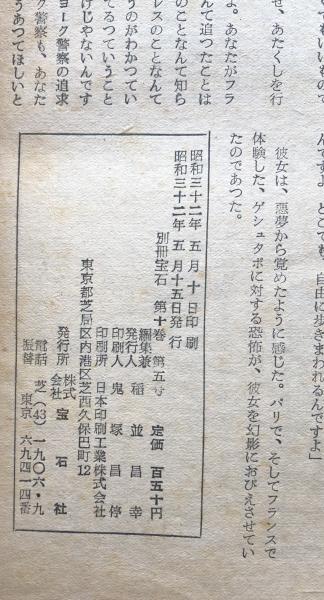 んですよ。どこでも、自由に歩きまわれるんですよ」
彼女は、悪夢から覚めたように感じた。パリで、そしてフランスで
体験した、ゲシュタポに対する恐怖が、彼女を幻影におびえさせてい
たのであつた。
せ、あたくしを行
よ。あなたがフラ
んて追つたことは
のことなんて知ら
レスのことなんて
うのがわかつてい
てるつていうこと
けじやないんです
ヨーク警察の追求
ーク警察も、あなた
うあつてほしいと
昭和三十二年 五 月 十 日印刷
昭和三十二年 五 月十五日発行
別冊宝石 第十巻 第五号
定価 百五十円
編集兼発行人 稲並昌幸
印刷人 鬼塚昌停
印刷所 日本印刷工業株式会社
東京都芝局区内港区芝西久保巴町12
発行所 株式会社 宝石社
電話 芝(43)一九〇六・九
振替 東京 六九四一四番